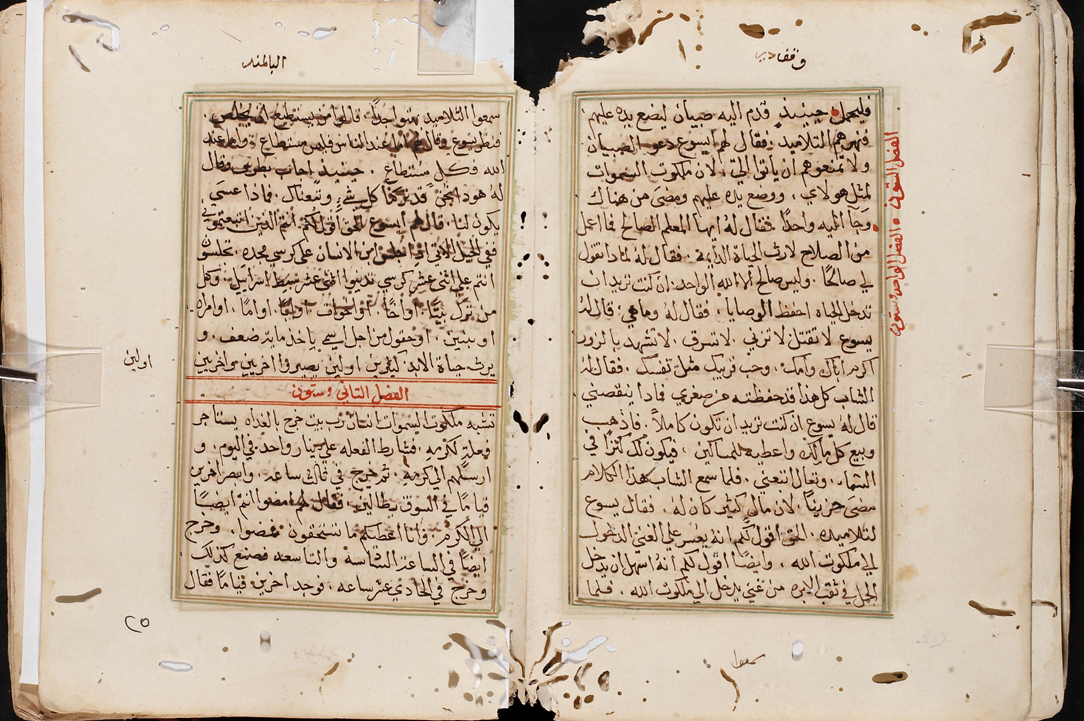 وقفا
فليحمل حينيذ قدم اليه صبيان ليضع يده عليهم
فنهرهم التلاميذ فقال لهم ايسوع دعوا الصبيان
ولا تمنعوهم أن ياتوا اليّ لان ملكوت السموات
لمثل هولاي ووضع يده عليهم ومضى من هناك
وجا اليه واحدًا فقال له ايها المعلم الصالح فااعمل
من الصلاح لارث الحياة الدايمة فقال له لماذا تقول
لي صالحًا وليس صالح الا الله الواحد ان كنت تريد ان
تدخل الحياه احفظ الوصايا فقال له وما هي قال له
يسوع لا تقتل لا تزني لا تسرق لا تشهد بالزور
اكرم اباك وامك وحب قريبك مثل نفسك فقال له
الشاب كل هذا قد حفظته من صغري فماذا ينقصني
قال له يسوع ان كنت تريد ان تكون كاملًا فاذهب
وبيع كل مالك واعطيه للمساكين فيكون لك كنزًا في
السما وتعال اتبعني فلما سمع الشاب هذا الكلام
مضى حزينًا لان مال كثير كان له فقال يسوع
لتلاميذه الحق اقول لكم انه يعسر علي الغني الدخول
الي ملكوت الله وايضًا اقول لكم انه اسهل ان يدخل
الجمل في ثقب الابره من غني يدخل الي ملكوت الله فلما
الفصل الستون الفصل الواحد وستون
البالهند
سمعوا التلاميذ بهتوا جدًا قالوا من يستطيع ان يخلص
فنظر يسوع وقال لهم اما عند الناس فليس مستطاع واما عند
الله فكل مستطاع حينيذ اجاب بطرس وقال
له هوذا نحن قد تركنا كل شي وتبعناك فماذا عسى
يكون لنا قال لهم ايسوع الحق اقول لكم انتم الذين اتبعتموني
في الجيل الاتي اذا جلس ابن الانسان على كرسي مجده تجلسون
انتم علي اثني عشر كرسي تدينوا اثني عشر سبط اسراييل وكل
من ترك بيتًا او اخًا او اخوات او ابًا او امًا او امراه
او بنين او حقول من اجل اسمي ياخذ مايه ضعف و
يرث حياة الابد كثيرين اولين يصيروا اخريين واخريين
اولين
الفصل الثاني وستون
تشبه ملكوت السموات انسان رب بيت خرج بالغداه يستاجر
فعله لكرمه فشارط الفعله علي دينار واحد في اليوم و
ارسلهم الي كرمه ثم خرج في ثالث ساعه وابصر اخرين
قيامًا في السوق بطالين فقال لهم امضوا انتم ايضًا
الي الكرم وانا اعطيكم ما تستحقون فمضوا وخرج
ايضًا في الساعة السادسة والتاسعه فصنع كذلك
وخرج في الحادي عشر ساعه فوجد اخرين قيامًا فقال
٢٥